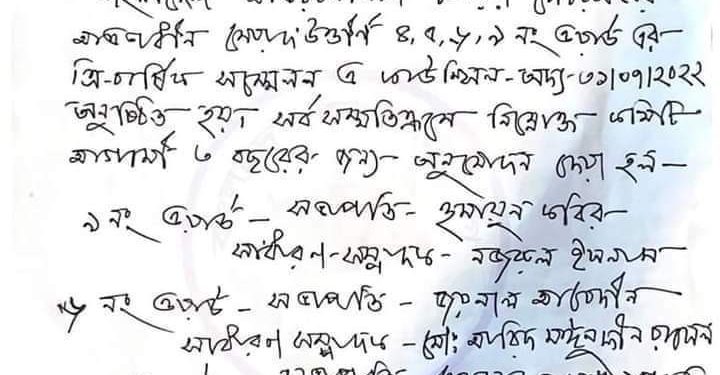 আওতাধীন মেয়াদ উত্তীর্ণ ৪, ৭, ৮, ৯ নং ওয়ার্ড এর
ত্রি-বার্ষিক সম্মেলন ও কাউন্সিল-অদ্য-৩১/০৭/২০২২
অনুষ্ঠিত হয়। সর্ব সম্মতিক্রমে নিম্নোক্ত কমিটি
আগামী ৩ বছরের জন্য অনুমোদন দেয়া হল—
৯ নং ওয়ার্ড — সভাপতি - হুমায়ুন কবির
সাধারণ-সম্পাদক - নজরুল ইসলাম
৮ নং ওয়ার্ড — সভাপতি - জয়নাল আবেদীন
সাধারণ সম্পাদক - মো: মঈনুদ্দীন